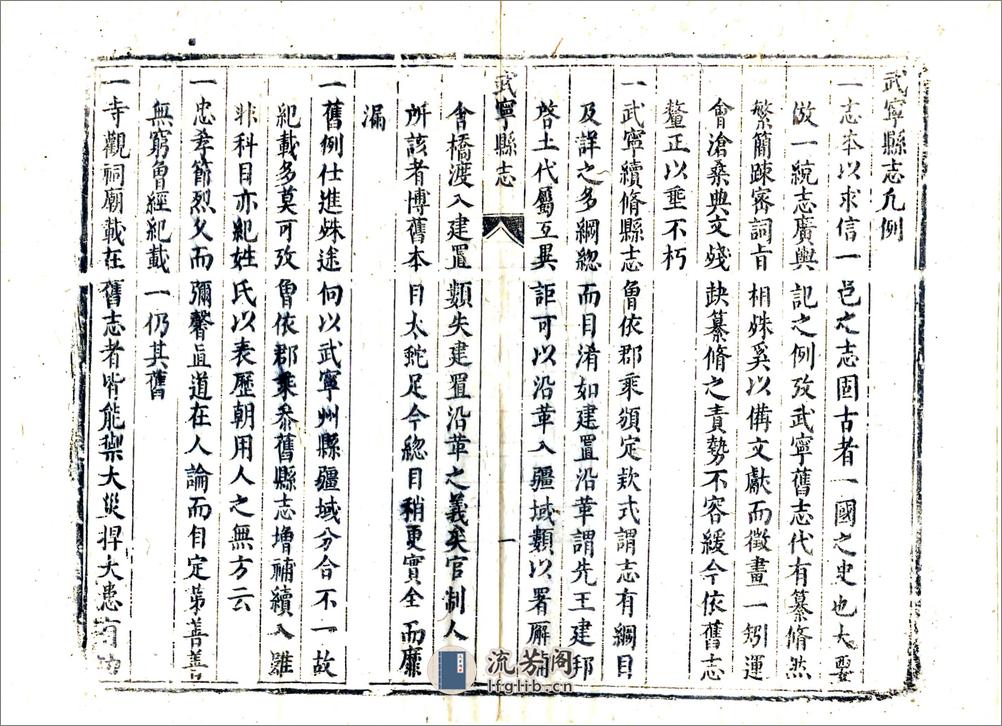 武寧縣志凡例
一志本以求信一邑之志固古者一國之史也大要
倣一統志廣輿記之例攷武寧舊志代有纂脩然
繁簡踈宻詞旨相殊奚以備文獻而徵畫一矧運
會滄桑典文殘缺纂脩之責勢不容緩今依舊志
釐正以垂不朽
一武寧續脩縣志魯依郡乘頒定款式謂志有綱目
及詳之多綱緫而目淆如建置沿革謂先王建邦
啓土代屬互異詎可以沿革入疆域類以署廨
武寧縣志
一
舍橋渡入建置類失建置沿革之義矣官制人
所該者博舊本目太蛇足今緫目稍更實全而靡
漏
一舊例仕進殊途何以武寧州縣疆域分合不一故
紀載多莫可攷魯依郡乘叅舊縣志增補續入雖
非科目亦紀姓氏以表歷朝用人之無方云
一忠孝節烈久而彌馨直道在人論而自定第善善
無窮魯經紀載一仍其舊
一寺觀祠廟載在舊志者皆能禦大災捍大患有
流芳阁
lfglib.cn